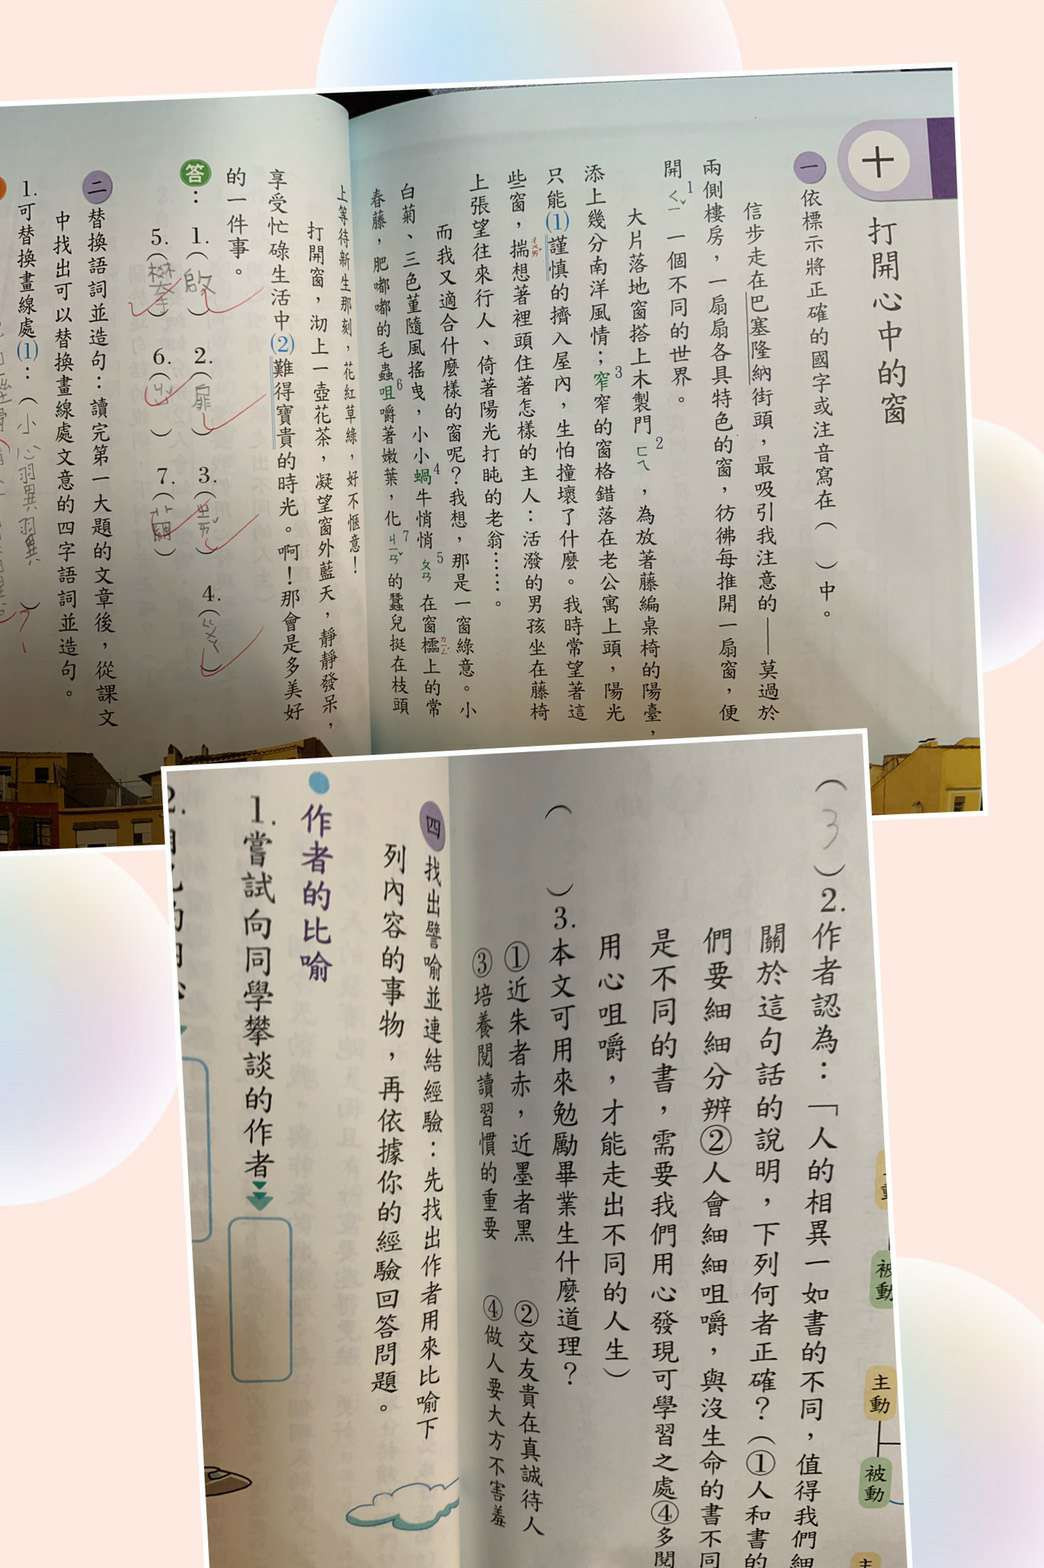 十
打開心中的窗
一 依標示將正確的國字或注音寫在( )中。
信步走在巴塞隆納街頭,最吸引我注意的——莫過於
兩側樓房,一扇扇各具特色的窗,彷彿每推開一扇窗,便
開1ㄑㄧˇ一個不同的世界。
大片落地窗搭上木製門2ㄈㄟ,為放著藤編桌椅的陽臺,
添上幾分南洋風情;3窄窄的窗格錯落在老公寓上頭,陽光
只能(1)謹慎的擠入屋內,生怕撞壞了什麼。我時常望著這
些窗,揣想著裡頭住著怎樣的主人:活潑的男孩坐在藤椅
上張望往來行人、倚著陽光打盹的老翁……。
而我又適合什麼樣的窗呢?我想,那是一窗綠意。小
白菊、三色堇隨風搖曳,小小4蝸牛悄悄5ㄆㄢ在窗櫺上的常
春藤,肥嘟嘟的毛蟲6咀嚼著嫩葉,化7ㄐㄧㄢˇ的蠶兒挺在枝頭
上等待新生那刻,花紅草綠,好不愜意!
打開窗,沏上一壺花茶,凝望窗外藍天,靜靜發呆,
享受忙碌生活中(2)難得寶貴的時光。啊!那會是多美好
的一件事。
答:1.(啟) 2.(扉) 3.( ) 4.( )
5.(攀) 6.( ) 7.(繭)
二 替換語詞並造句:讀完第一大題的文章後,從課文
中找出可以替換畫線處文意的四字語詞並造句。
1.可替換畫線處(1):(小心翼翼)
主動
被動
(3)2.作者認為:「人的相異一如書的不同,值得我們細
關於這句話的說明,下列何者正確?(①人和書的
們要細細分辨②人會細細咀嚼,與沒生命的書不同
是不同的書,需要我們用心發現可學習之處④多閱
用心咀嚼,才能走出不同的人生)
( )3.本文可用來勉勵畢業生什麼道理?
①近朱者赤,近墨者黑 ②交友貴在真誠待人
③培養閱讀習慣的重要 ④做人要大方不害羞
四 找出譬喻並連結經驗:先找出作者用來比喻下
列內容的事物,再依據你的經驗回答問題。
作者的比喻
1.嘗試向同學攀談的作者